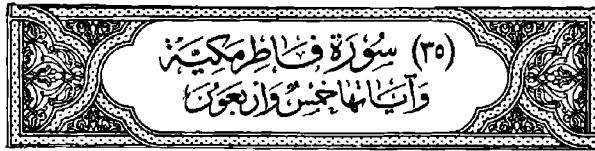 (٣٥) سُورَة فَاطِر مَكيَّة
وَآيَاتهَا خَمسٌ وَاربَعُون